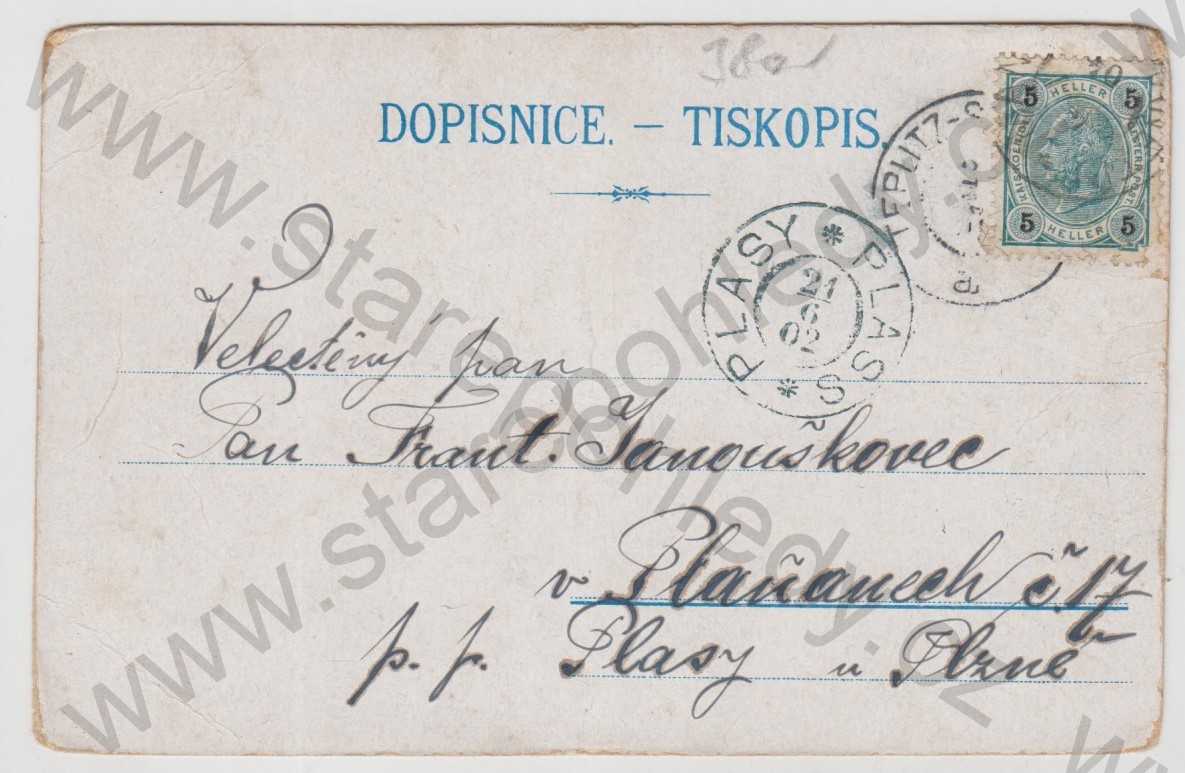 DOPISNICE. – TISKOPIS.
5 HELLER 5
KAISKOENIGL
OESTERR.POST
5 HELLER 5
TEPLITZ-S
PLASY * PLASS *
21
Velectěný pan
Pan Frant. Janouškovec
v Plaňanech č. 17
p. p. Plasy u Plzně
www.starepohledy.cz
www.starepohledy.cz